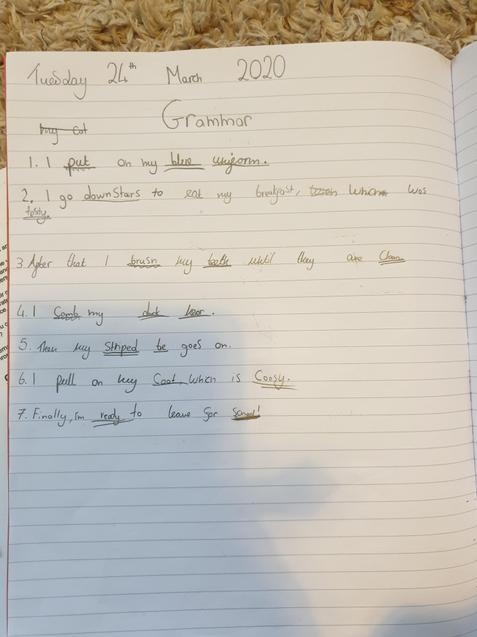 Tuesday 24th March 2020
Grammar
my cat
1. I put on my blue uniform.
2. I go downstars to eat my breakfast, which was
tasty.
3 After that I brush my teeth until they are clean
4. I comb my dark hair.
5. Then my striped tie goes on.
6. I pull on my coat, which is coosy.
7. Finally, I'm ready to leave for school!